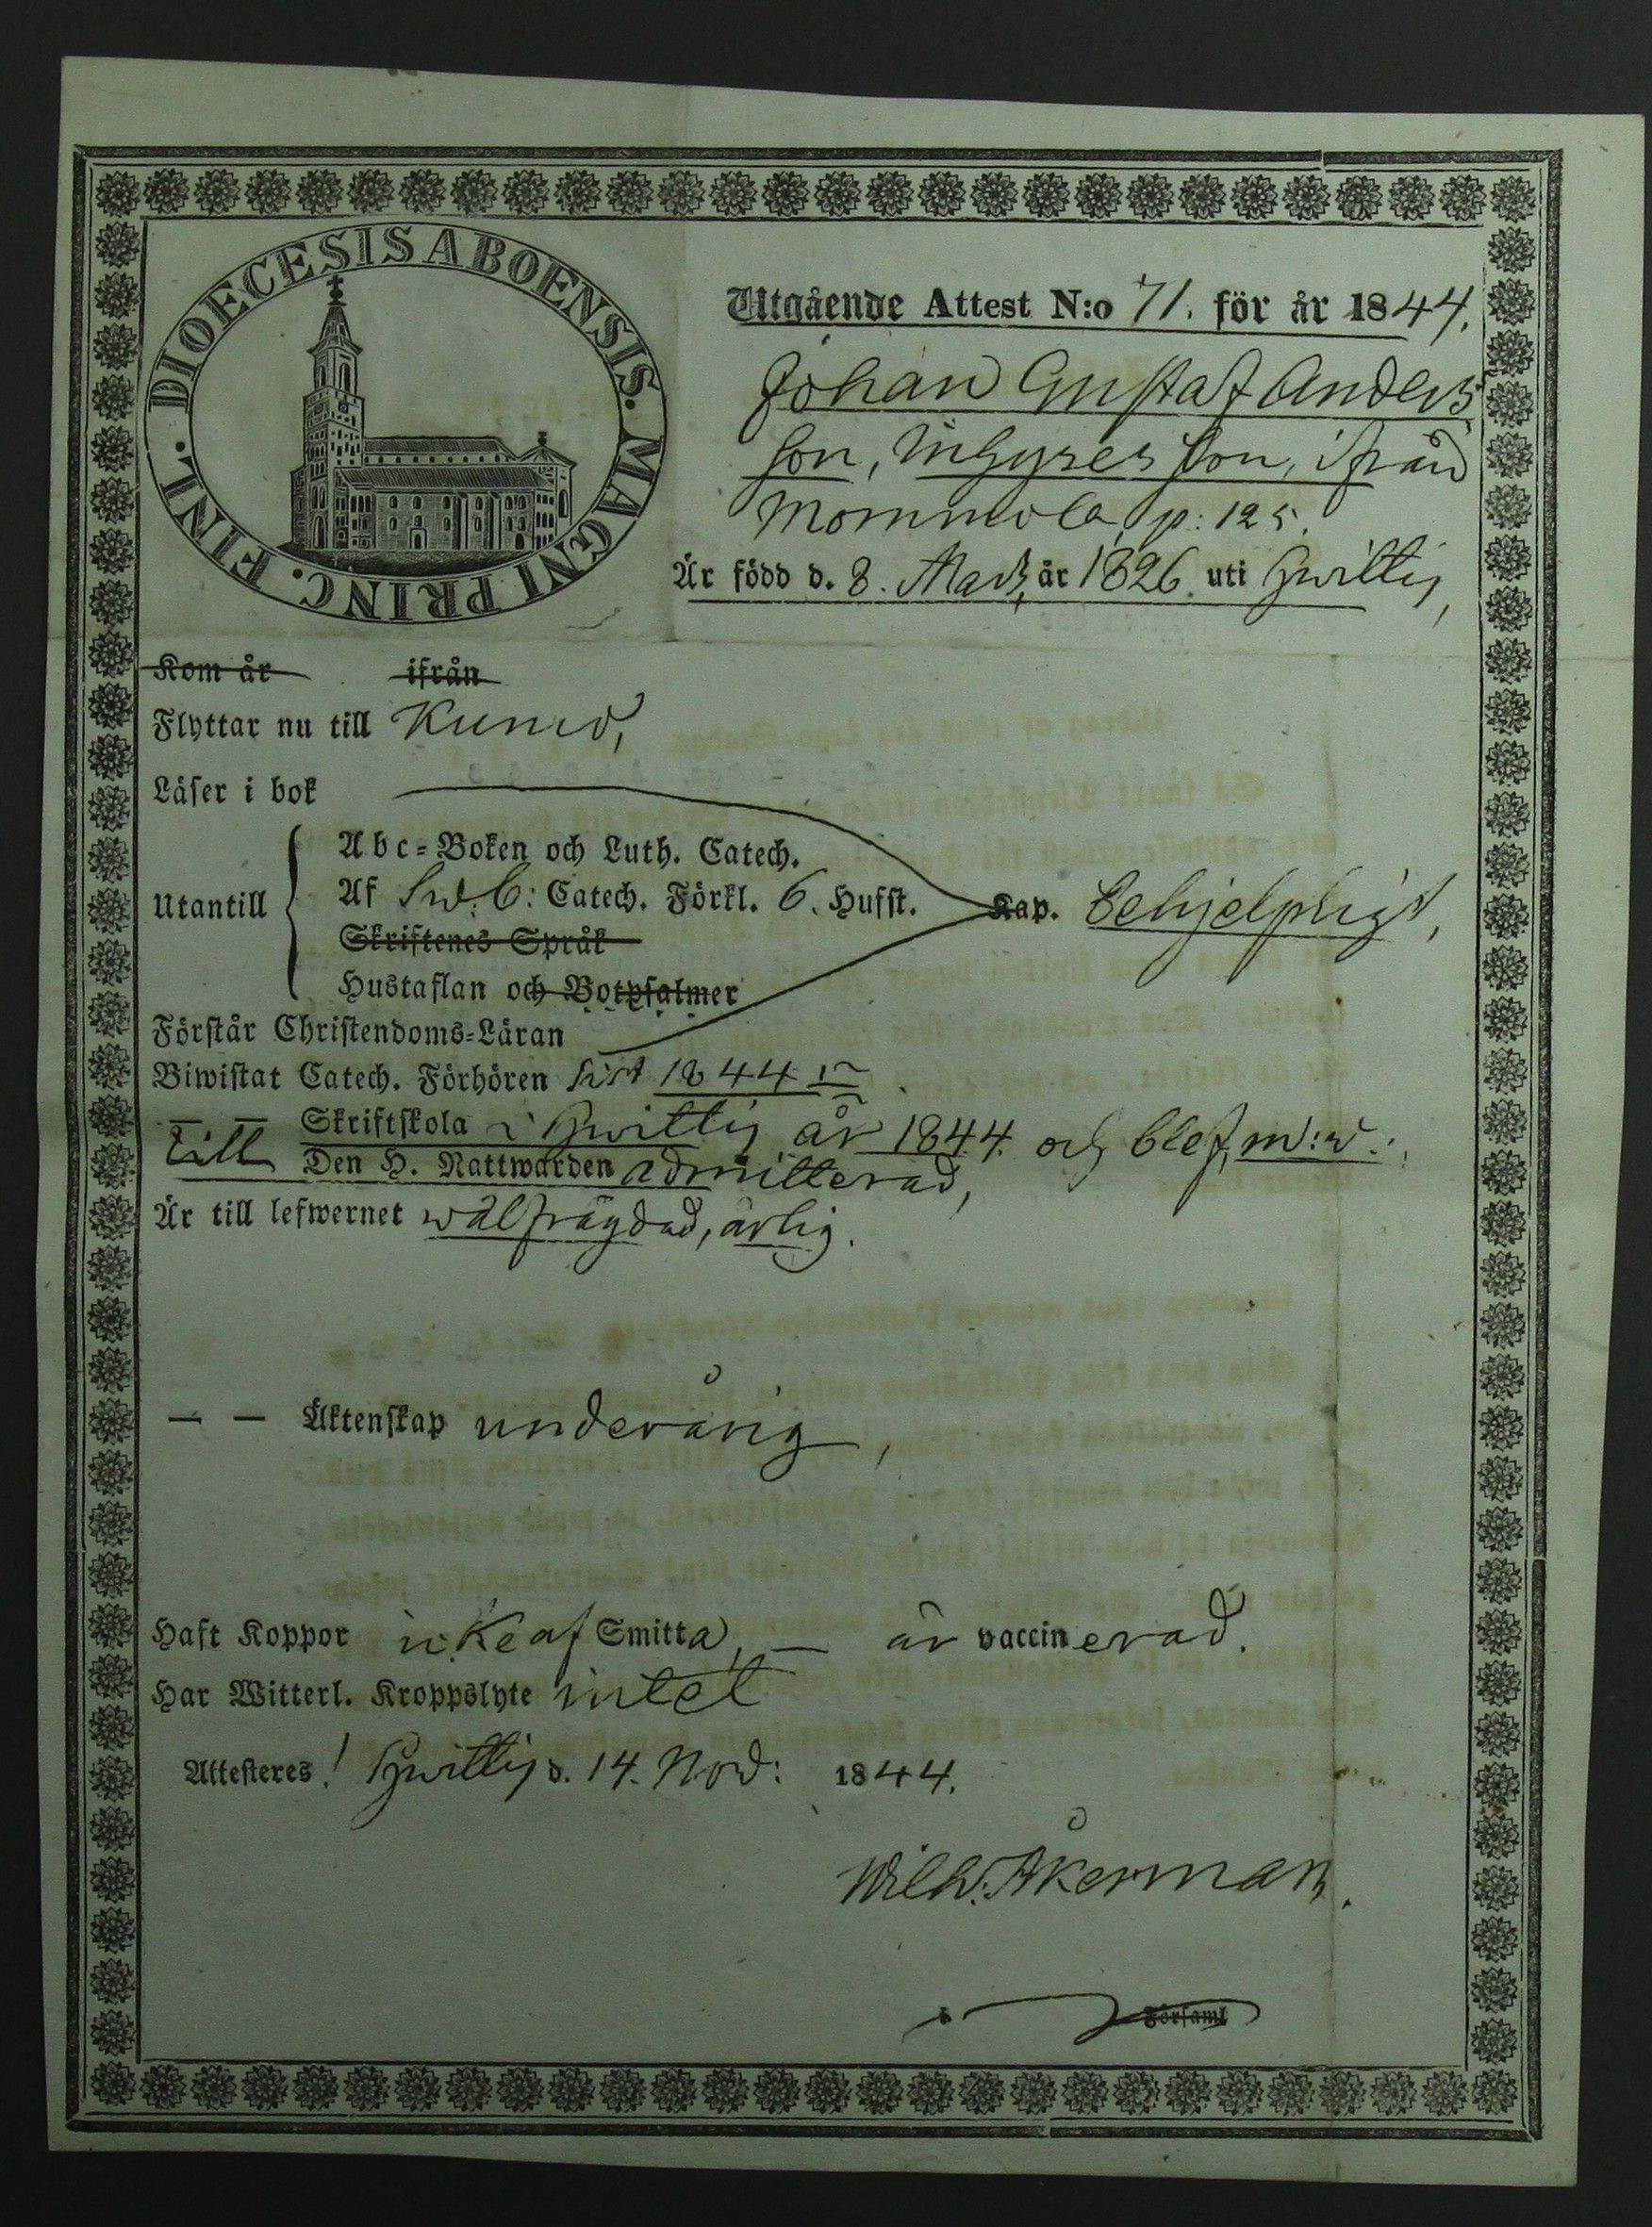 DIOECESIS ABOENSIS. MAGNI PRINC. FINL.
Utgående Attest N:o 71. för år 1844.
Johan Gustaf Anders
son, Inhyses son, ifrån
Mommola, p: 125.
Är född d. 8. Mars, år 1826 uti Hwittis,
Kom år ifrån
Flyttar nu till Kumo,
Läser i bok
Abc-Boken och Luth. Catech.
Utantill Af Sv:b: Catech. Förkl. 6. Hufst. Kap. behjelpligt,
Skriftenes Språk
Hustaflan och Botpsalmer
Förstår Christendoms-Läran
Biwistat Catech. Förhören sist 1844
— — Skriftskola i Hwittis år 1844. och blef
till Den H. Nattwarden admitterad,
Är till lefwernet wälfrägdad, ärlig.
— — Äktenskap underårig,
Haft Koppor icke af Smitta, — är vaccinerad.
Har Witterl. Kroppslyte intet
Attesteres! Hwittis d. 14. Nov: 1844.
Wilh: Åkerman.
Församl